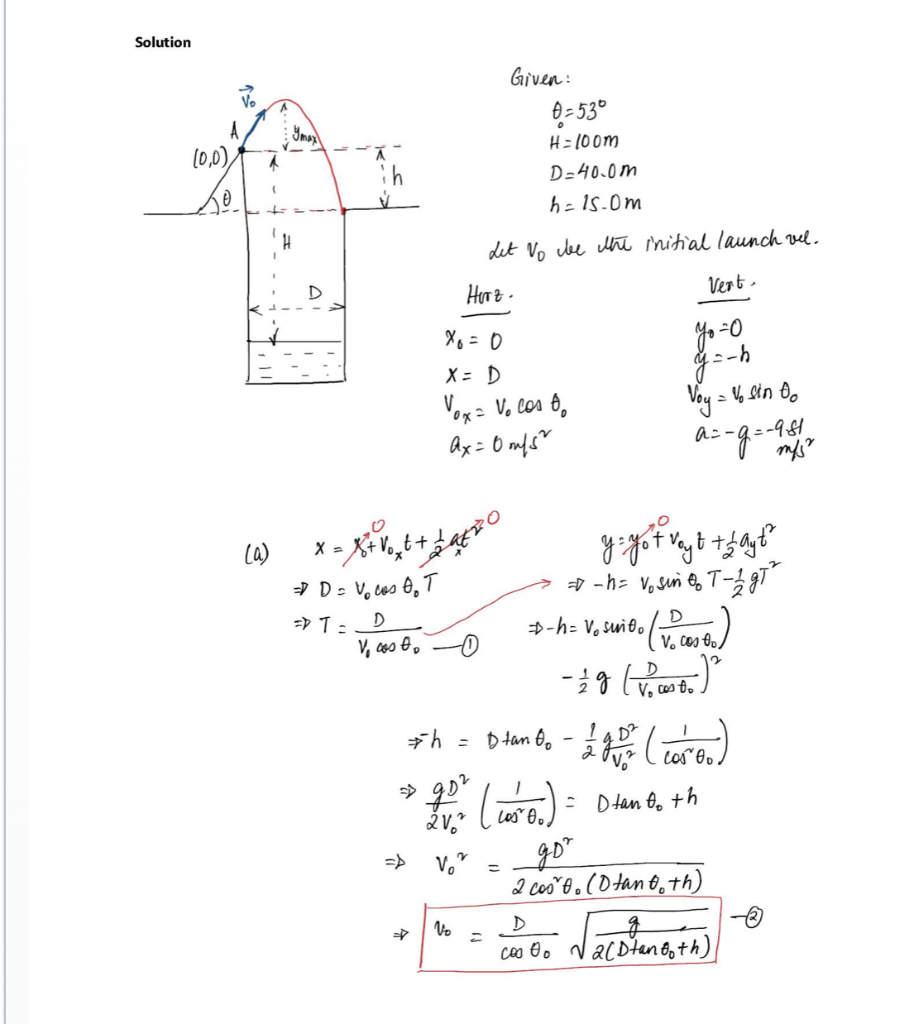 Solution
Given:
θ₀ = 53°
H = 100m
D = 40.0 m
h = 15.0 m
Let V₀ be the initial launch vel.
V⃗₀
A
(0,0)
y_max
h
θ
H
D
Horz.
x₀ = 0
x = D
V₀ₓ = V₀ cos θ₀
aₓ = 0 m/s²
Vert.
y₀ = 0
y = -h
V₀y = V₀ sin θ₀
a = -g = -9.81 m/s²
(a) x = x₀ + V₀ₓt + ½ aₓt²
0
0
⇒ D = V₀ cos θ₀ T
⇒ T = D / (V₀ cos θ₀) —①
y = y₀ + V₀y t + ½ a_y t²
0
⇒ -h = V₀ sin θ₀ T - ½ gT²
⇒ -h = V₀ sin θ₀ (D / (V₀ cos θ₀))
- ½ g (D / (V₀ cos θ₀))²
⇒ -h = D tan θ₀ - ½ g D²/V₀² (1 / cos² θ₀)
⇒ gD²/2V₀² (1 / cos² θ₀) = D tan θ₀ + h
⇒ V₀² = gD² / (2 cos² θ₀ (D tan θ₀ + h))
⇒ V₀ = D / cos θ₀ √(g / (2(D tan θ₀ + h))) —②